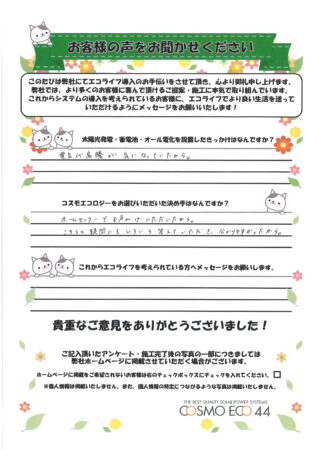 お客様の声をお聞かせください
このたびは弊社にてエコライフ導入のお手伝いをさせて頂き、心より御礼申し上げます。
弊社では、より多くのお客様に喜んで頂けるご提案・施工に本気で取り組んでいます。
これからシステムの導入を考えられているお客様に、エコライフでより良い生活を送って
いただけるようにメッセージをお願いいたします！
太陽光発電・蓄電池・オール電化を設置したきっかけはなんですか？
電気代高騰が気になっていたから。
コスモエコロジーをお選びいただいた決め手はなんですか？
ホームセンターでお声かけいただいたから。
こちらの疑問にもいろいろ答えていただき、分かりやすかったから。
これからエコライフを考えられている方へメッセージをお願いします。
貴重なご意見をありがとうございました！
ご記入頂いたアンケート・施工完了後の写真の一部につきましては
弊社ホームページに掲載させていただく場合がございます。
ホームページに掲載をご希望されないお客様は右のチェックボックスにチェックを入れてください。
※個人情報は掲載いたしません。また、個人情報の特定につながるような写真は掲載いたしません。
THE BEST QUALITY SOLAR POWER SYSTEMS
COSMO ECO 44